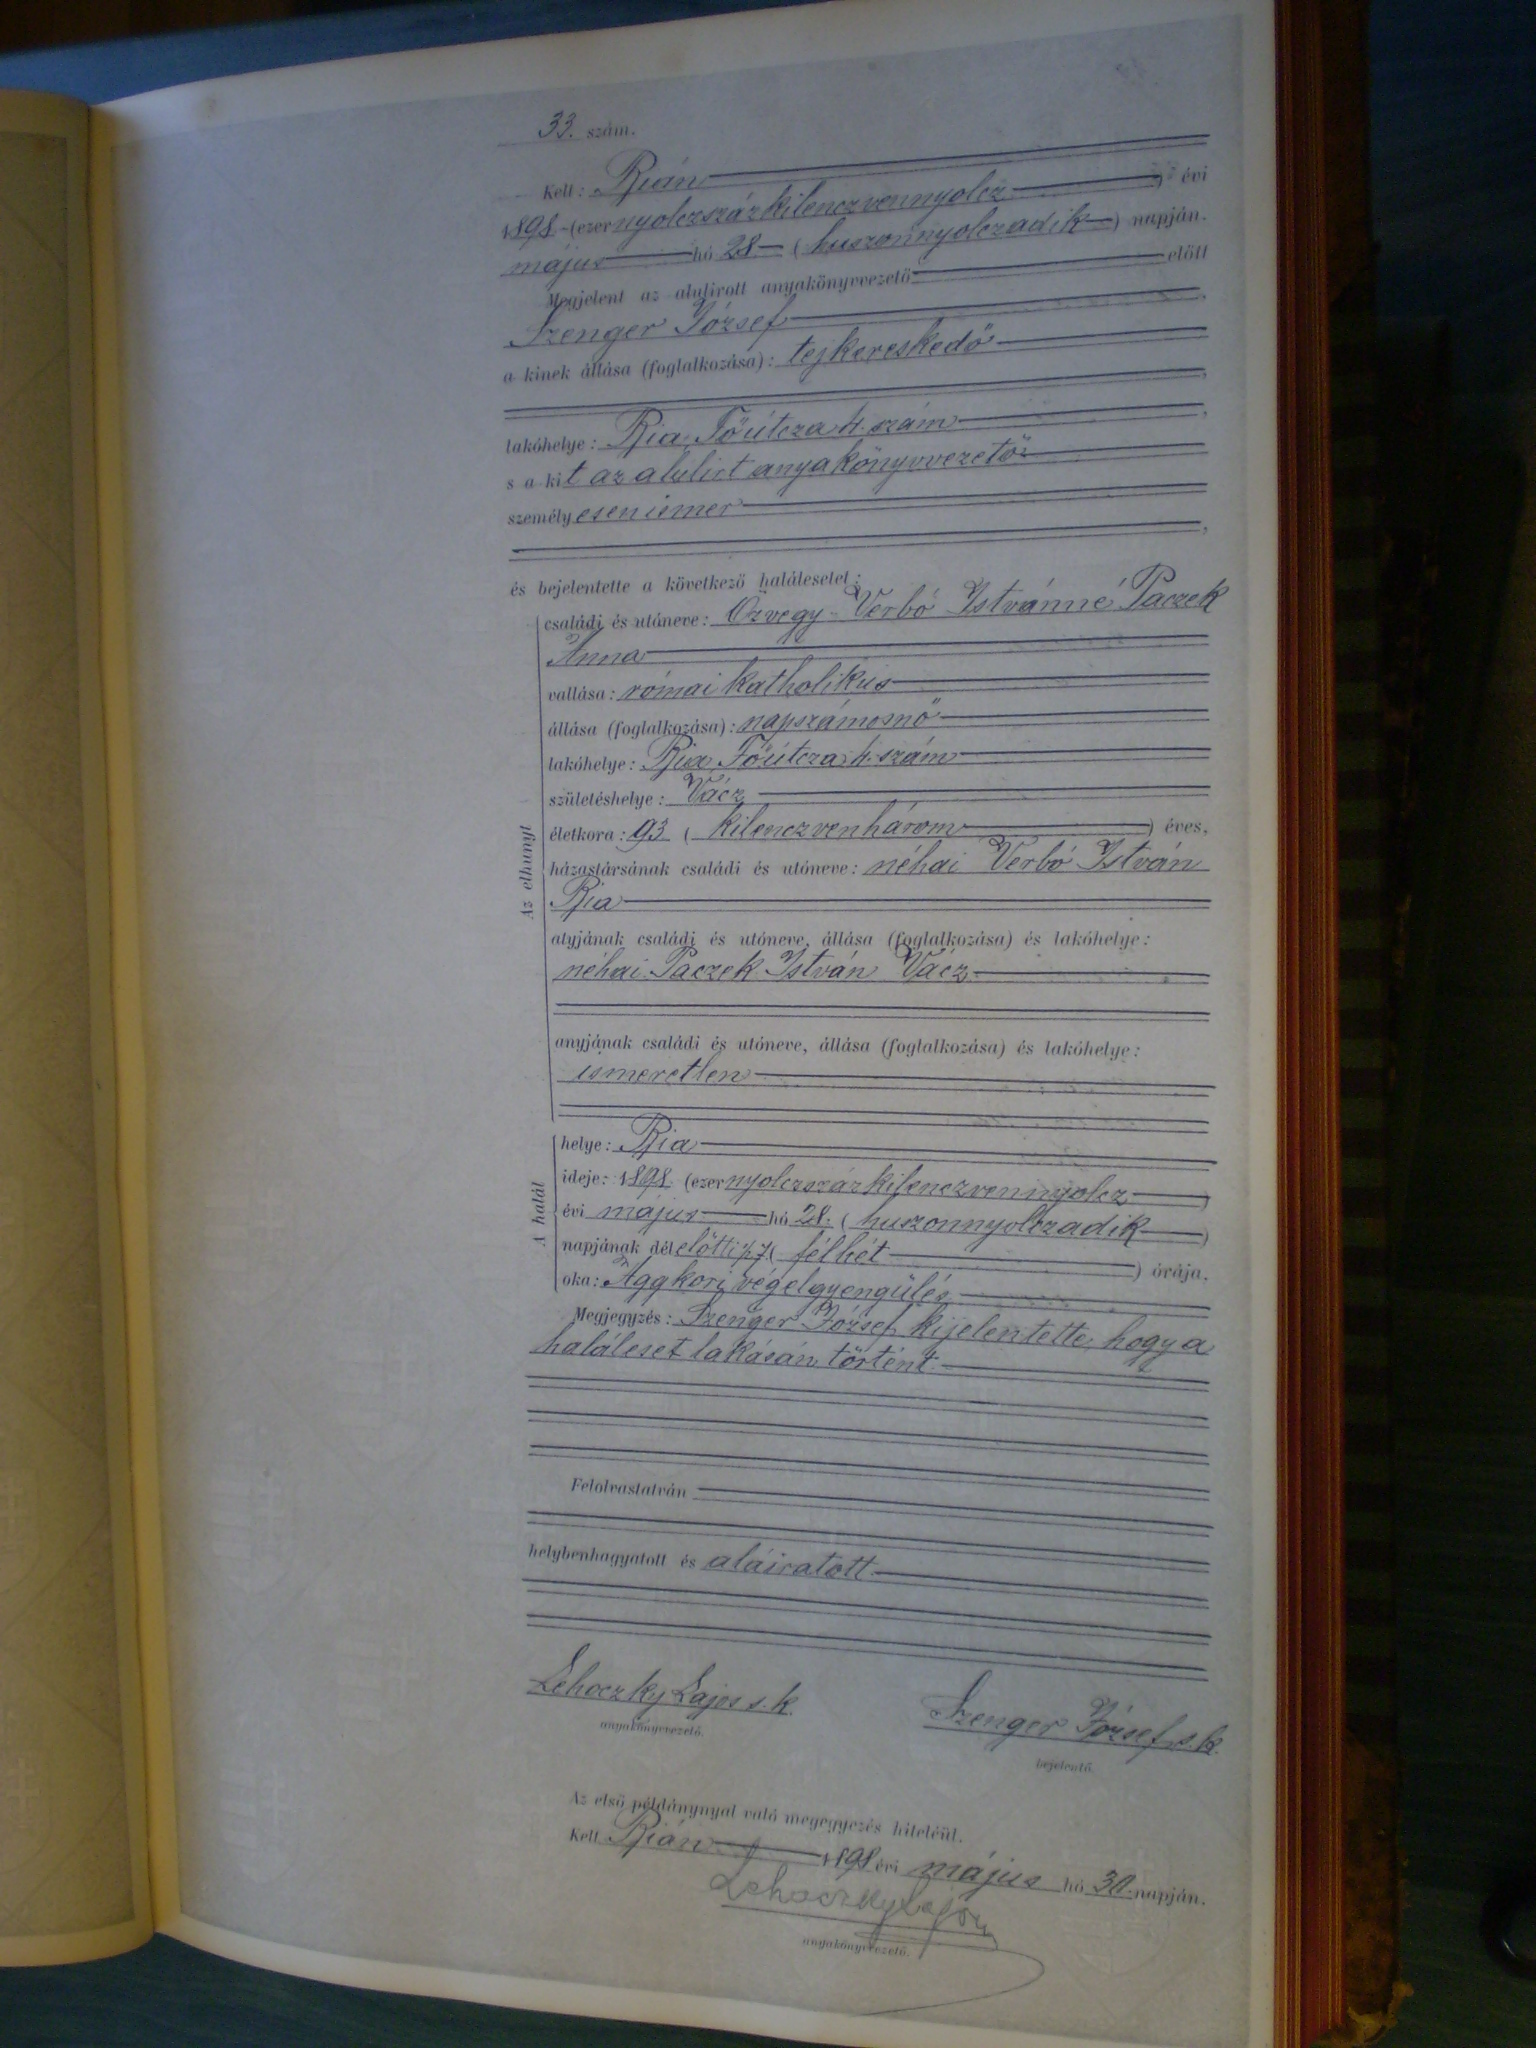 33. szám.
Kelt: Bián
1898 (ezernyolczszázkilenczvennyolcz) évi
május hó 28 (huszonnyolczadik) napján.
Megjelent az alulirott anyakönyvvezető előtt
Szenger József,
a kinek állása (foglalkozása): tejkereskedő
,
lakóhelye: Bia, Főútcza 4. szám,
s a kit az alulirt anyakönyvvezető
személyesen ismer
,
és bejelentette a következő halálesetet:
Az elhunyt
családi és utóneve: Özvegy Verbó Istvánné Paczek
Anna
vallása: római katholikus
állása (foglalkozása): napszámosnő
lakóhelye: Bia, Főútcza 4. szám
születéshelye: Vácz
életkora: 93 (kilenczvenhárom) éves,
házastársának családi és utóneve: néhai Verbó István
Bia
atyjának családi és utóneve, állása (foglalkozása) és lakóhelye:
néhai Paczek István Vácz
anyjának családi és utóneve, állása (foglalkozása) és lakóhelye:
ismeretlen
A halál
helye: Bia
ideje: 1898 (ezernyolczszázkilenczvennyolcz)
évi május hó 28. (huszonnyolczadik)
napjának délelőtti ½7 (félhét) órája,
oka: Aggkori végelgyengülés
Megjegyzés: Szenger József kijelentette, hogy a
haláleset lakásán történt.
Felolvastatván
helybenhagyatott és aláiratott.
Lehoczky Lajos s. k.
anyakönyvvezető.
Szenger József s. k.
bejelentő.
Az első példánynyal való megegyezés hiteléül.
Kelt Bián 1898 évi május hó 30. napján.
Lehoczky Lajos
anyakönyvvezető.